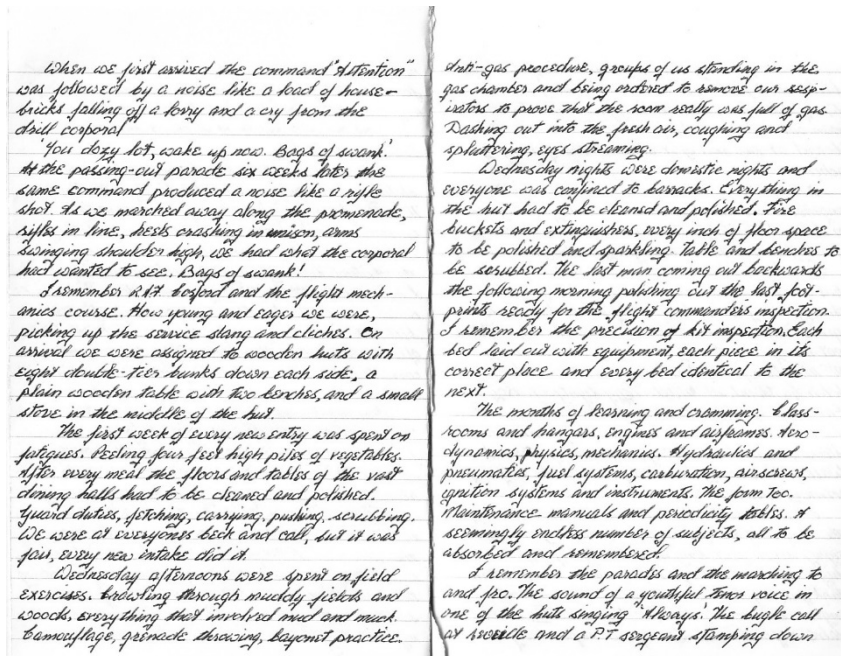 When we first arrived the command "Attention"
was followed by a noise like a load of house-
bricks falling off a lorry and a cry from the
drill corporal
'You dozy lot, wake up now. Bags of swank.'
At the passing-out parade six weeks later the
same command produced a noise like a rifle
shot. As we marched away along the promenade,
rifles in line, heels crashing in unison, arms
swinging shoulder high, we had what the corporal
had wanted to see. Bags of swank!
I remember RAF Cosford and the flight mech-
anics course. How young and eager we were,
picking up the service slang and cliches. On
arrival we were assigned to wooden huts with
eight double-tier bunks down each side, a
plain wooden table with two benches, and a small
stove in the middle of the hut.
The first week of every new entry was spent on
fatigues. Peeling four feet high piles of vegetables.
After every meal the floors and tables of the vast
dining halls had to be cleaned and polished.
Guard duties, fetching, carrying, pushing, scrubbing.
We were at everyones beck and call, but it was
fair, every new intake did it.
Wednesday afternoons were spent on field
exercises. Crawling through muddy fields and
woods, everything that involved mud and muck.
Camouflage, grenade throwing, bayonet practice.
Anti-gas procedure, groups of us standing in the
gas chamber and being ordered to remove our resp-
irators to prove that the room really was full of gas.
Dashing out into the fresh air, coughing and
spluttering, eyes streaming.
Wednesday nights were domestic nights and
everyone was confined to barracks. Everything in
the hut had to be cleaned and polished. Fire
buckets and extinguishers, every inch of floor space
to be polished and sparkling. Table and benches to
be scrubbed. The last man coming out backwards
the following morning polishing out the last foot-
prints ready for the flight commanders inspection.
I remember the precision of kit inspection. Each
bed laid out with equipment, each piece in its
correct place and every bed identical to the
next.
The months of learning and cramming. Class-
rooms and hangars, engines and airframes. Aero-
dynamics, physics, mechanics. Hydraulics and
pneumatics, fuel systems, carburation, airscrews,
ignition systems and instruments. The form 700.
Maintenance manuals and periodicity tables. A
seemingly endless number of subjects, all to be
absorbed and remembered.
I remember the parades and the marching to
and fro. The sound of a youthful tenor voice in
one of the huts singing 'Always.' The bugle call
at reveille and a P.T sergeant stamping down